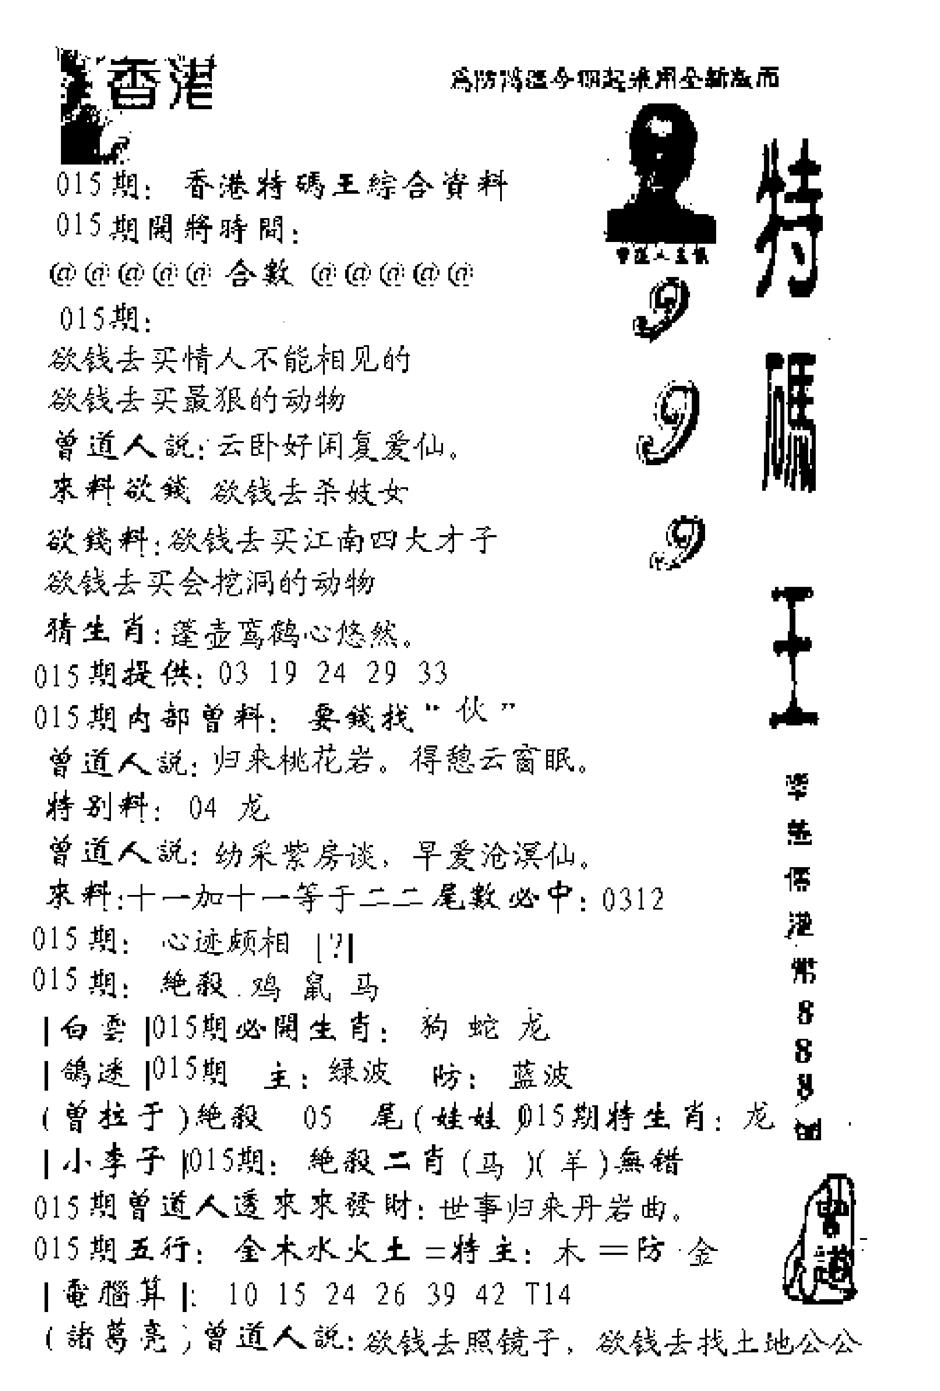 香港
為防濫今期起采用全新版面
015期：香港特碼王綜合資料
015期開將時間：
@@@@@合數@@@@@
015期：
欲钱去买情人不能相见的
欲钱去买最狠的动物
曾道人説：云卧好闲复爱仙。
來料欲錢 欲钱去杀妓女
欲錢料：欲钱去买江南四大才子
欲钱去买会挖洞的动物
猜生肖：蓬壶鸾鹤心悠然。
015期提供：03 19 24 29 33
015期内部曾料：要錢找“伙”
曾道人説：归来桃花岩。得憩云窗眠。
特别料：04 龙
曾道人説：幼采紫房谈，早爱沧溟仙。
來料：十一加十一等于二二尾數必中：0312
015期：心迹颇相 |?|
015期：絶殺.鸡 鼠 马
|白雲|015期必開生肖：狗 蛇 龙
|鴿迷|015期 主：绿波 防：蓝波
(曾拉于)絶殺 05 尾(娃娃)015期特生肖：龙
|小李子|015期：絶殺二肖(马)(羊)無错
015期曾道人透來來發財：世事归来丹岩曲。
015期五行：金木水火土=特主：木=防 金
|電腦算|：10 15 24 26 39 42 T14
(諸葛亮)曾道人説：欲钱去照镜子，欲钱去找土地公公
曾道人
9
9
9
特
碼
王
港
幣
8
8
8
曾道